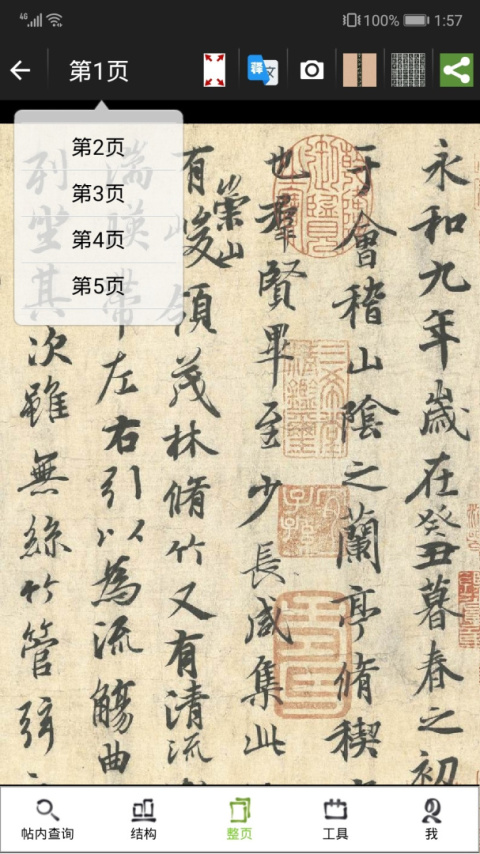 4G 100% 1:57
第1页
译文
第2页
第3页
第4页
第5页
永和九年歲在癸丑暮春之初
于會稽山陰之蘭亭脩稧
也羣賢畢至少長咸集此
有崇山峻領茂林脩竹又有清流
湍暎帶左右引以為流觴曲
列坐其次雖無絲竹管弦
三希堂精鑑璽
宜子孫
帖内查询 结构 整页 工具 我